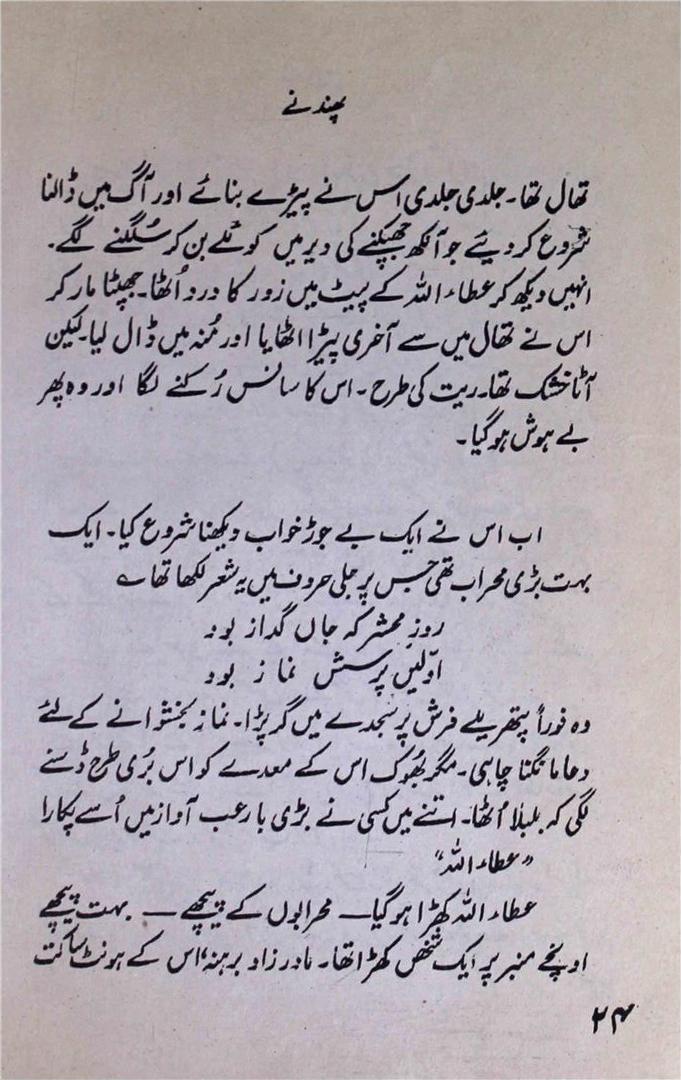 پھندنے
تھال تھا۔ جلدی جلدی اس نے پیڑے بنائے اور آگ میں ڈالنا
شروع کر دیئے جو آنکھ جھپکنے کی دیر میں کوئلے بن کر سُلگنے لگے۔
انہیں دیکھ کر عطاء اللہ کے پیٹ میں زور کا درد اُٹھا۔ جھپٹا مار کر
اس نے تھال میں سے آخری پیڑا اٹھایا اور مُنہ میں ڈال لیا۔ لیکن
آٹا خشک تھا۔ ریت کی طرح۔ اس کا سانس رُکنے لگا اور وہ پھر
بے ہوش ہو گیا۔
اب اس نے ایک بے جوڑ خواب دیکھنا شروع کیا۔ ایک
بہت بڑی محراب تھی جس پر جلی حروف میں یہ شعر لکھا تھا ؎
روزِ محشر کہ جاں گداز بود
اوّلیں پرسش نماز بود
وہ فوراً پتھریلے فرش پر سجدے میں گر پڑا۔ نماز بخشوانے کے لئے
دعا مانگنا چاہی۔ مگر بھُوک اس کے معدے کو اس بُری طرح ڈسنے
لگی کہ بلبلا اُٹھا۔ اتنے میں کسی نے بڑی بارعب آواز میں اُسے پکارا
”عطاء اللہ“
عطاء اللہ کھڑا ہو گیا — محرابوں کے پیچھے — بہت پیچھے
اونچے منبر پر ایک شخص کھڑا تھا۔ مادر زاد برہنہ، اس کے ہونٹ ساکت
۲۴